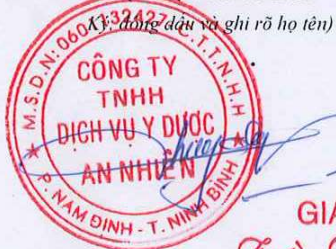 Ký, đóng dấu và ghi rõ họ tên)
M.S.D.N: 0601232427-C.T.T.N.H.H
CÔNG TY
TNHH
DỊCH VỤ Y DƯỢC
AN NHIÊN
P. NAM ĐỊNH - T. NINH BÌNH
GIÁ